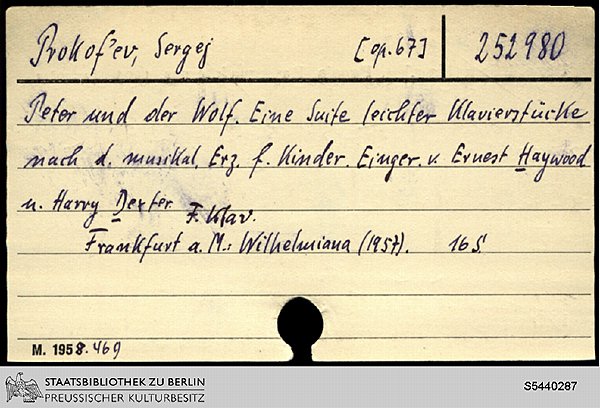 Prokof'ev, Sergej [op. 67] 252980
Peter und der Wolf. Eine Suite leichter Klavierstücke
nach d. musikal. Erz. f. Kinder. Einger. v. Ernest Haywood
u. Harry Dexter F. Klav.
Frankfurt a. M.: Wilhelmiana (1957). 16 S.
M. 1958.469
STAATSBIBLIOTHEK ZU BERLIN
PREUSSISCHER KULTURBESITZ
S5440287